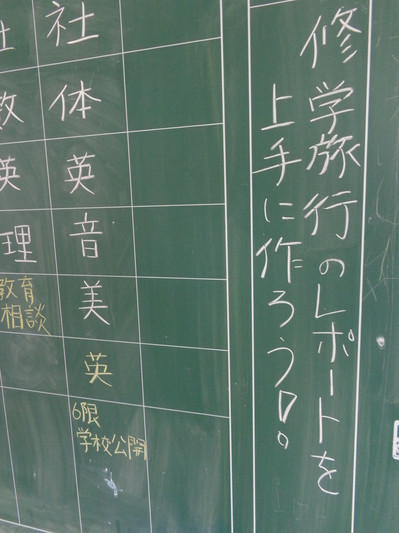 修学旅行のレポートを
上手に作ろう!。
社
体
英
音
美
英
6限
学校公開
社
数
英
理
教育
相談